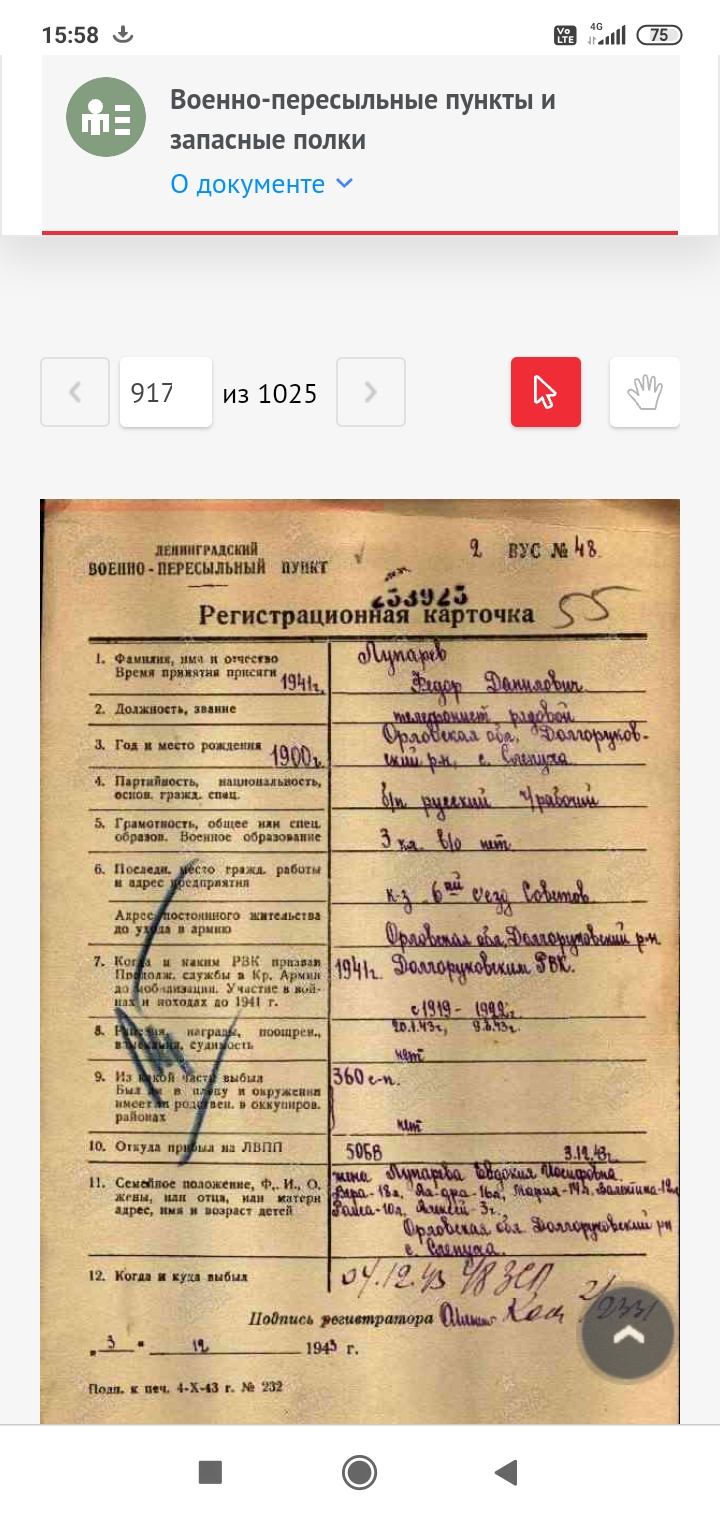 15:58
Vo LTE 4G 75
Военно-пересыльные пункты и
запасные полки
О документе
917 из 1025
ЛЕНИНГРАДСКИЙ
ВОЕННО-ПЕРЕСЫЛЬНЫЙ ПУНКТ
2 ВУС № 48
253925
Регистрационная карточка 55
1. Фамилия, имя и отчество Лупарев
Время принятия присяги 1941г. Федор Данилович
2. Должность, звание телефонист рядовой
3. Год и место рождения 1900г. Орловская обл. Долгоруков-
ский р-н, с. Слепуха
4. Партийность, национальность,
основ. гражд. спец. б/п русский Ч/рабочий
5. Грамотность, общее или спец.
образов. Военное образование 3 кл. в/о нет
6. Последн. место гражд. работы
и адрес предприятия к-з 6ой съезд Советов
Адрес постоянного жительства
до ухода в армию Орловская обл. Долгоруковский р-н
7. Когда и каким РВК призван 1941г. Долгоруковским РВК.
Продолж. службы в Кр. Армии
до мобилизации. Участие в вой-
нах и походах до 1941 г. с 1919 - 1922г.
8. Ранения, награды, поощрен., 20.1.43г., 9.8.43г.
взыскания, судимость нет
9. Из какой части выбыл 360 с-п.
Был ли в плену и окружении
имеет ли родствен. в оккупиров.
районах нет
10. Откуда прибыл на ЛВПП 50БВ 3.12.43г.
11. Семейное положение, Ф., И., О. жена Лупарева Евдокия Иосифовна
жены, или отца, или матери Вера-18л, Ал-дра-16л, Мария-14л. Валентина-12л
адрес, имя и возраст детей Раиса-10л, Алексей-3г.
Орловская обл Долгоруковский р-н
с. Слепуха.
12. Когда и куда выбыл 04.12.43 48 ЗСП
2/2331
Подпись регистратора
„ 3 “ 12 1943 г.
Подп. к печ. 4-X-43 г. № 232